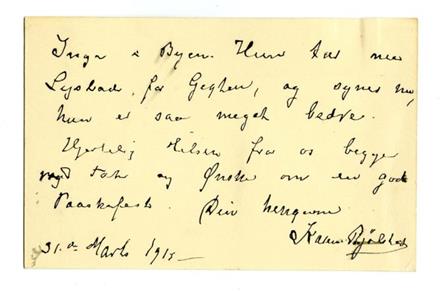 Inga i Byen. Hun tar nu
Lysbad for Gigten, og synes nu,
hun er saa meget bedre.
Hjertelig Hilsen fra os begge
og Ønske om en god
Paaskefest. Din hengivne
Karen
31. Marts 1915